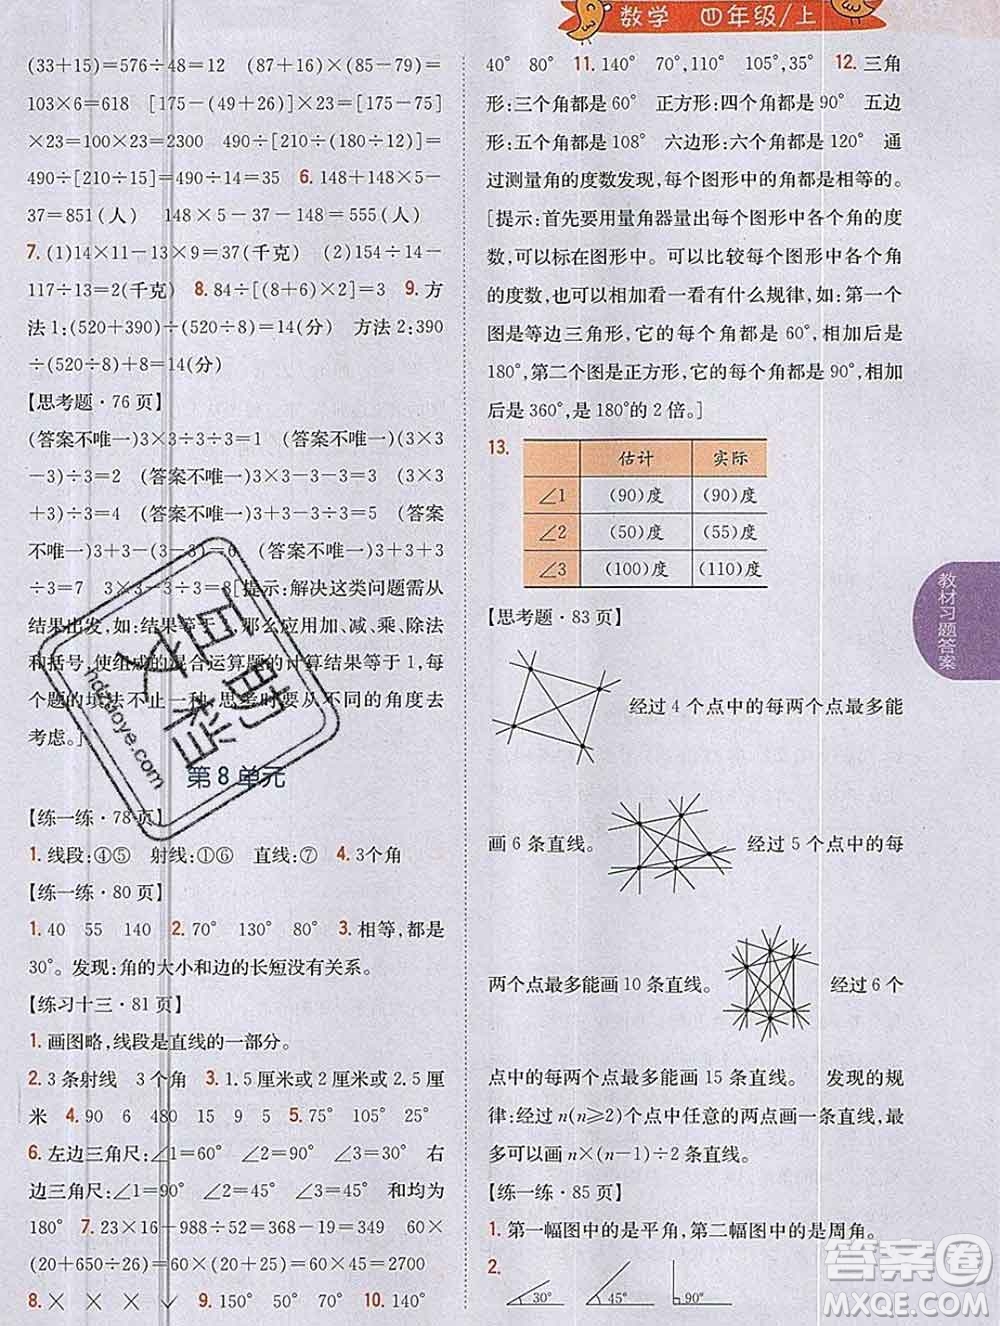 数学 四年级/上
(33+15)=576÷48=12 (87+16)×(85-79)=
103×6=618 [175-(49+26)]×23=[175-75]
×23=100×23=2300 490÷[210÷(180÷12)]=
490÷[210÷15]=490÷14=35 6. 148+148×5-
37=851(人) 148×5-37×5=148=555(人)
7. (1)14×11-13×9=37(千克) (2)154÷11-
117÷13=2(千克) 8. 84÷[(8+6)×2]=3 9. 方
法1:(520+390)÷(520÷8)=14(分) 方法2:390
÷(520÷8)+8=14(分)
【思考题·76页】
(答案不唯一)3×3÷3÷3=1 (答案不唯一)(3×3
-3)÷3=2 (答案不唯一)3×3-3-3=3 (3×3
+3)÷3=4 (答案不唯一)3+3-3÷3=5 (答案
不唯一)3+3-(3-3)=6 (答案不唯一)3+3+3
÷3=7 3×3-3÷3=8[提示:解决这类问题需从
结果出发,如:结果等于1,那么应用加、减、乘、除法
和括号,使组成的混合运算题的计算结果等于1,每
个题的填法不止一种,思考时要从不同的角度去
考虑。]
第8单元
【练一练·78页】
1. 线段:④⑤ 射线:①⑥ 直线:⑦ 4. 3个角
【练一练·80页】
1. 40 55 140 2. 70° 130° 80° 3. 相等,都是
30°。发现:角的大小和边的长短没有关系。
【练习十三·81页】
1. 画图略,线段是直线的一部分。
2. 3条射线 3个角 3. 1.5厘米或2厘米或2.5厘
米 4. 90 6 480 15 9 5 5. 75° 105° 25°
6. 左边三角尺:∠1=60° ∠2=90° ∠3=30° 右
边三角尺:∠1=90° ∠2=45° ∠3=45° 和均为
180° 7. 23×16-988÷52=368-19=349 60×
(20+650÷26)=60×(20+25)=60×45=2700
8. × × × ✓ 9. 150° 130° 90° 10. 140°
40° 80° 11. 140° 70°,110° 105°,35° 12. 三角
形:三个角都是60° 正方形:四个角都是90° 五边
形:五个角都是108° 六边形:六个角都是120° 通
过测量角的度数发现,每个图形中的角都是相等的。
[提示:首先要用量角器量出每个图形中各个角的度
数,可以标在图形中。可以比较每个图形中各个角
的度数,也可以相加看一看有什么规律,如:第一个
图是等边三角形,它的每个角都是60°,相加后是
180°,第二个图是正方形,它的每个角都是90°,相加
后是360°,是180°的2倍。]
13.
估计 实际
∠1 (90)度 (90)度
∠2 (50)度 (55)度
∠3 (100)度 (110)度
【思考题·83页】
经过4个点中的每两个点最多能
画6条直线。 经过5个点中的每
两个点最多能画10条直线。 经过6个
点中的每两个点最多能画15条直线。 发现的规
律:经过n(n≥2)个点中任意的两点画一条直线,最
多可以画n×(n-1)÷2条直线。
【练一练·85页】
1. 第一幅图中的是平角,第二幅图中的是周角。
2.
30° 45° 90°
教材习题答案
hdzuoye.com
答案圈
MXQE.COM